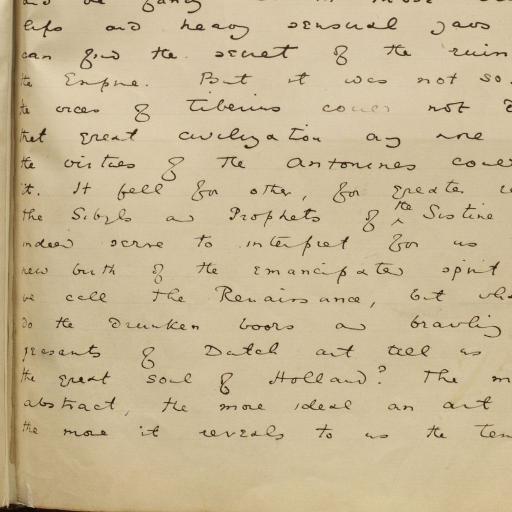 lips and heavy sensual jaws
can find the secret of the ruin
the Empire. But it was not so.
the vices of Tiberius could not
that great civilization any more
the virtues of the Antonines
it. It fell for other, for greater
the Sibyls and Prophets of the Sistine
indeed serve to interpret for us
new birth of the emancipated spirit
we call the Renaissance, but
do the drunken boors and brawling
peasants of Dutch art tell us
the great soul of Holland? The
abstract, the more ideal an art
the more it reveals to us the